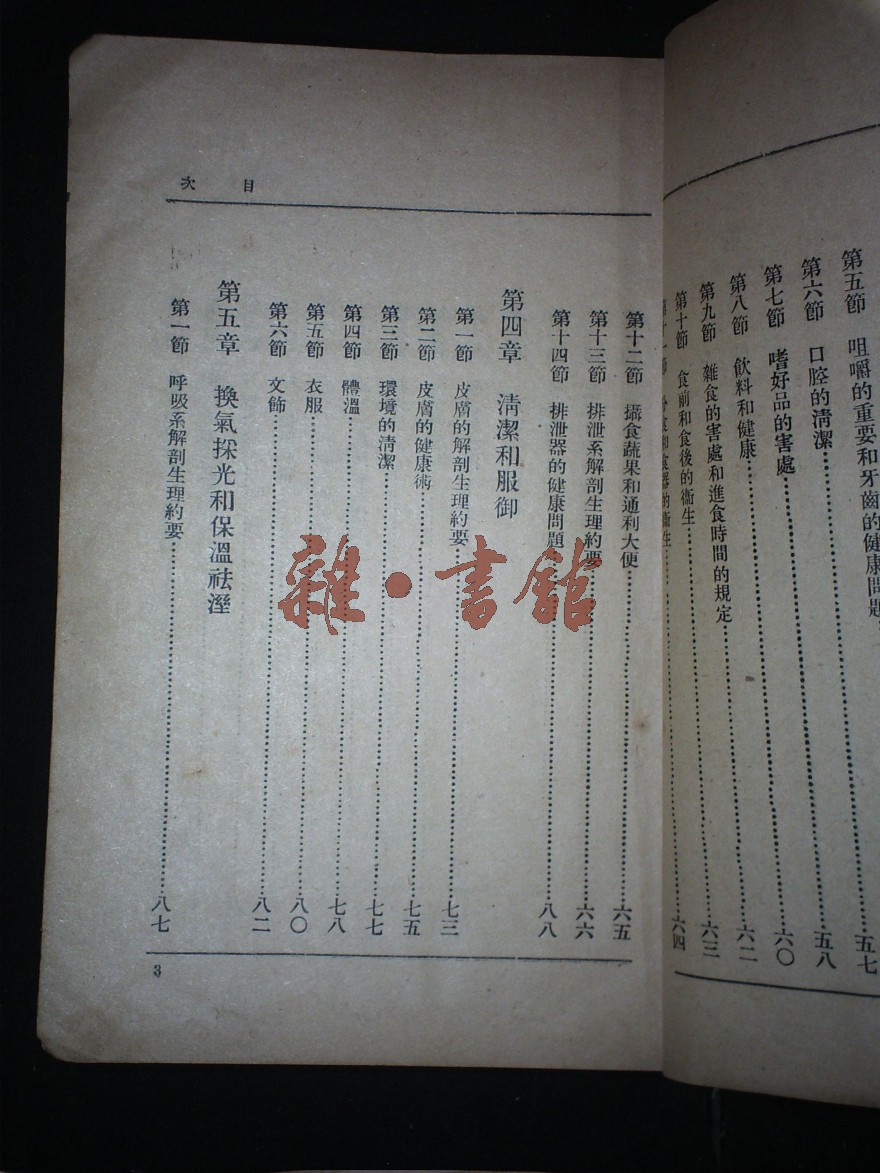 第五節　咀嚼的重要和牙齒的健康問題
第六節　口腔的清潔……五七
第七節　嗜好品的害處……五八
第八節　飲料和健康……六〇
第九節　雜食的害處和進食時間的規定……六二
第十節　食前和食後的衞生……六三
第十一節　分食和食器的衞生……六四
目次
第十二節　攝食蔬果和通利大便……六五
第十三節　排泄系解剖生理約要……六六
第十四節　排泄器的健康問題……八八
第四章　淸潔和服御
第一節　皮膚的解剖生理約要……七三
第二節　皮膚的健康術……七五
第三節　環境的淸潔……七七
第四節　體溫……七八
第五節　衣服……八〇
第六節　文飾……八二
第五章　換氣採光和保溫祛溼
第一節　呼吸系解剖生理約要……八七
3
雜·書館